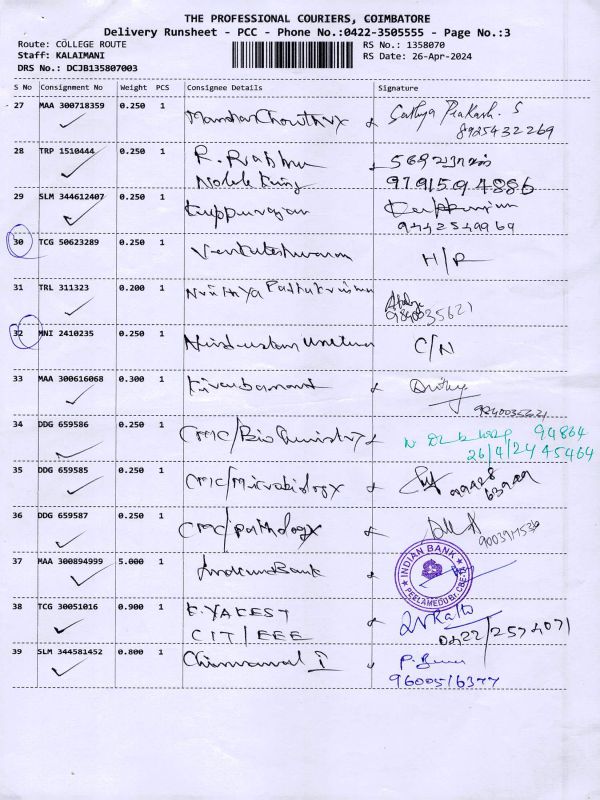 THE PROFESSIONAL COURIERS, COIMBATORE
Delivery Runsheet - PCC - Phone No.:0422-3505555 - Page No.:3
Route: COLLEGE ROUTE
RS No.: 1358070
Staff: KALAIMANI
RS Date: 26-Apr-2024
DRS No.: DCJB135807003
S No Consignment No Weight PCS Consignee Details Signature
27 MAA 300718359 0.250 1 Sathya Prakash. S
8925432269
28 TRP 1510444 0.250 1 R. Prabhu
Noble King 9791594886
29 SLM 344612407 0.250 1 Kuppurajan
9442549969
30 TCG 50623289 0.250 1 Venkateshwaran H/R
31 TRL 311323 0.200 1
9840035621
32 MNI 2410235 0.250 1 Hindustan C/N
33 MAA 300616068 0.300 1
9840035621
34 DDG 659586 0.250 1 CMC/Bio Chemistry 94864
26/4/24 45464
35 DDG 659585 0.250 1 CMC/Microbiology
36 DDG 659587 0.250 1 CMC/Pathology
37 MAA 300894999 5.000 1 Indian Bank INDIAN BANK
PEELAMEDU Br. CBE
38 TCG 30051016 0.900 1
CIT/EEE
39 SLM 344581452 0.800 1
9600516377